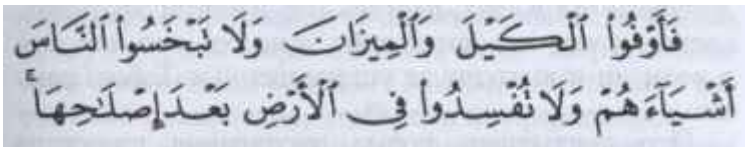 فَأَوْفُوا۟ ٱلْكَيْلَ وَٱلْمِيزَانَ وَلَا نَبْخَسُوا۟ ٱلنَّاسَ
أَشْيَآءَهُمْ وَلَا نُفْسِدُوا۟ فِى ٱلْأَرْضِ بَعْدَ إِصْلَٰحِهَا ۚ